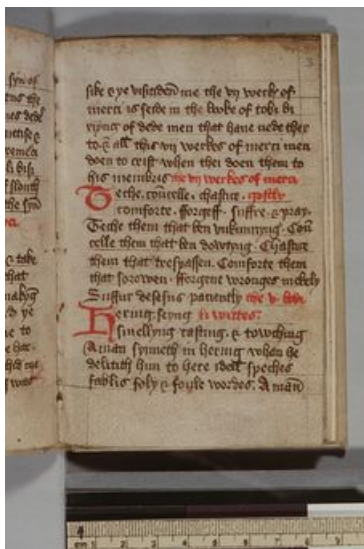 syn of
the
dede
slouth
the syn
& take
that
d ye
to
was
3
sike & ye visitiden me the vij werk of
merci is seide in the booke of tobi bi
riyng of dede men that haue nede ther
to & all this vij werkes of merci men
doen to crist when thei doen them to
his membris the vij werkes of merci
Teche . councelle . chastice . gostly
comforte . fforgeff . suffre . & pray .
Teche them that ken vnkunnyng . Coun
celle them that ken dowtyng . Chastice
them that trespassen . Comforte them
that sorowen . fforgeut wronges mekely
Suffur patiently the v. bodi
Hering seyng li wittes .
smellyng tasting . & towching
A man synneth in hering when he
deliteth him to here idell speches
fablis foly & foule wordes . A man
cm 1 2 3 4 5 6 7 8 9